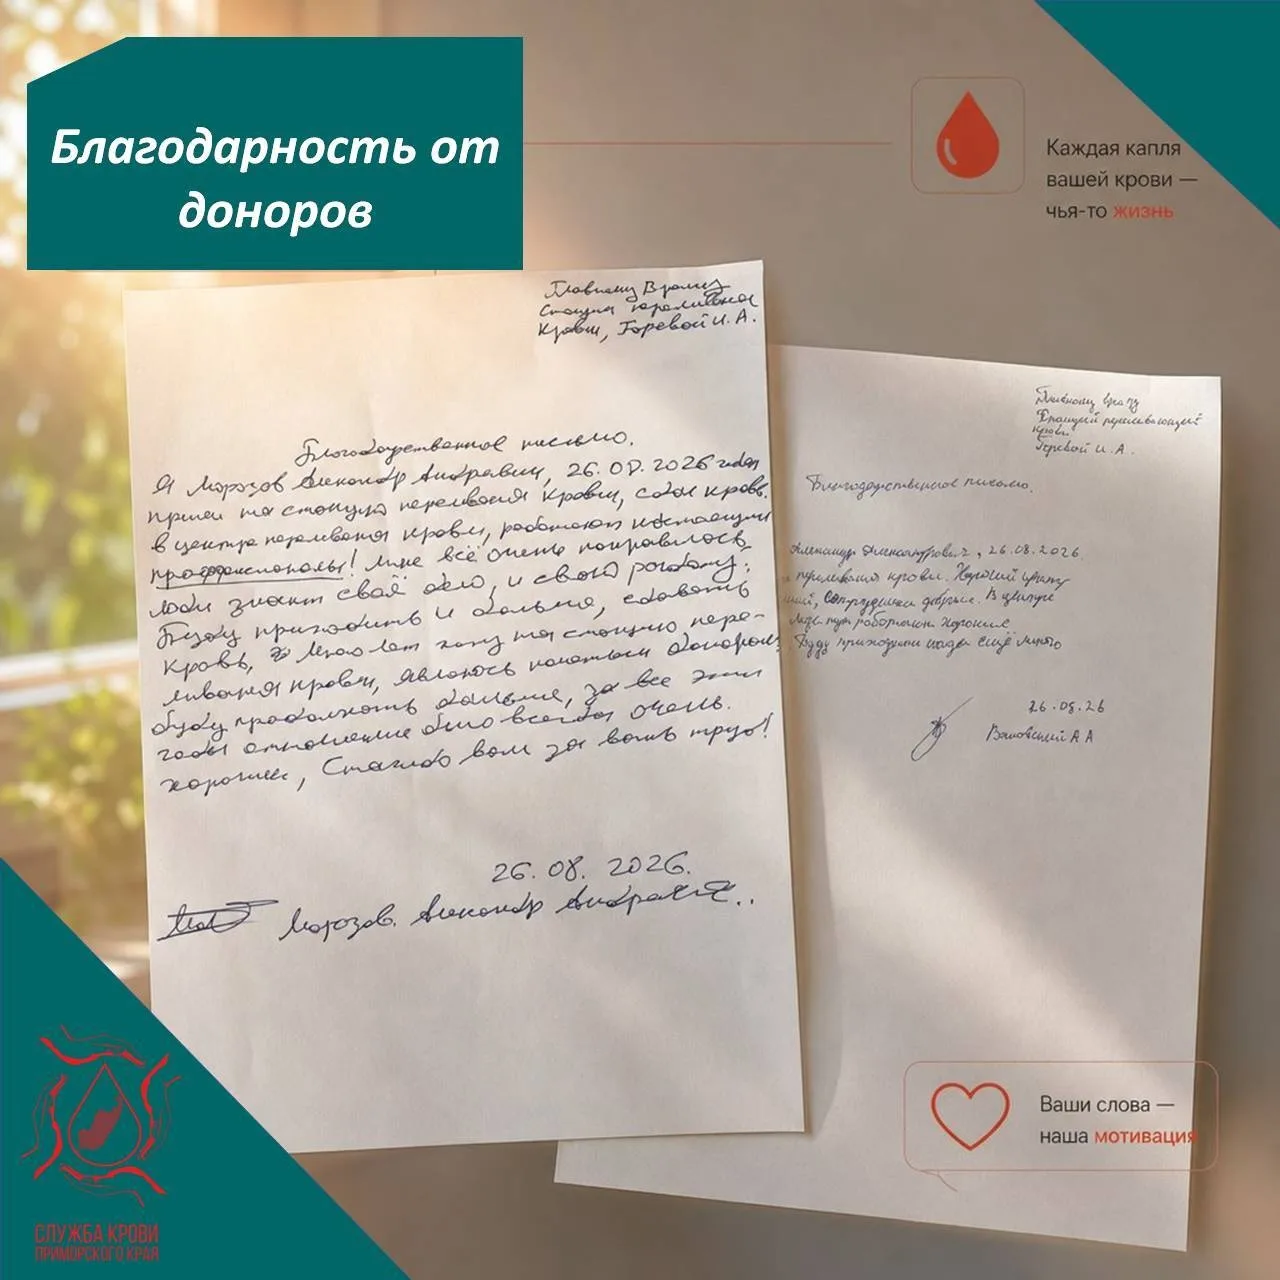 Благодарность от
доноров
Каждая капля
вашей крови —
чья-то жизнь
Главному Врачу
Станции переливания
Крови, Горевой И. А.
Благодарственное письмо.
Я Морозов Александр Андреевич, 26.08.2026 года
пришел на станцию переливания крови, сдал кровь.
в центре переливания крови, работают настоящии
профессионалы! Мне всё очень понравилось,
люди знают своё дело, и свою работу.
Буду приходить и дальше, сдавать
Кровь, Много лет хожу на станцию пере-
ливания крови, являюсь почетным донором,
буду продолжать дальше, за все эти
годы отношение было всегда очень.
хорошее, Спасибо вам за ваш труд!
26.08. 2026.
Морозов. Александр Андреевич..
Главному врачу
Станции переливающей
крови
Горевой И. А.
Благодарственное письмо.
Александр Александрович, 26.08.2026
переливания крови. Хороший центр
сотрудники добрые. В центре
работают хорошие
Буду приходить сюда ещё много
26.08.26
А А
Ваши слова —
наша мотивация
СЛУЖБА КРОВИ
ПРИМОРСКОГО КРАЯ